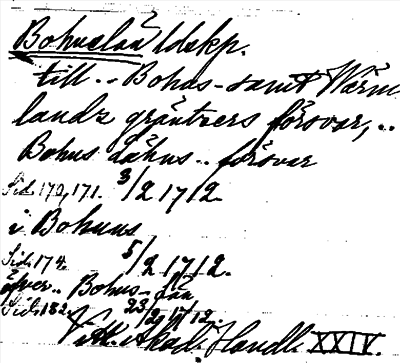 Bohuslän ldskp.
till .. Bohus- samt Wärm
lands gräntzers försvar, ..
Bohus Lähns .. försvar
Sid. 170, 171. 3/2 1712.
i Bohuus
Sid. 174. 5/2 1712.
öfver .. Bohus-Län
Sid. 182. 23/2 1712.
Vitt. Akad. Handl. XXIV.